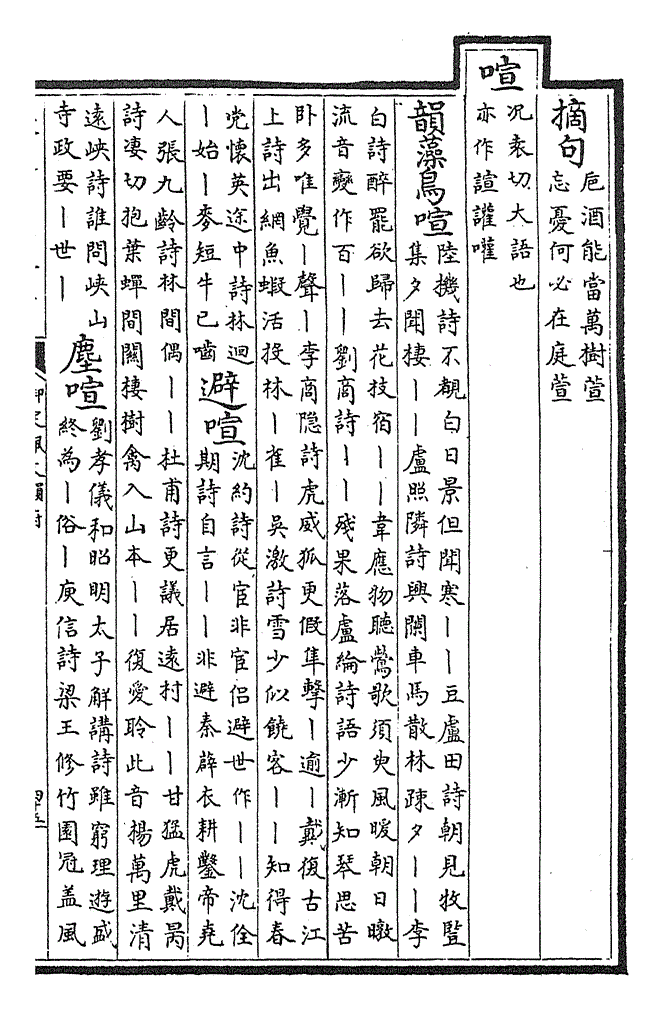 摘句
巵酒能當萬樹萱
忘憂何必在庭萱
喧
况袁切大語也
亦作諠讙嚾
韻藻鳥喧
陸機詩不覩白日景但聞寒丨丨豆盧田詩朝見牧監
集夕聞棲丨丨盧照隣詩興闌車馬散林疎夕丨丨李
白詩醉罷欲歸去花枝宿丨丨韋應物聽鶯歌須臾風暖朝日暾
流音變作百丨丨劉商詩丨丨殘果落盧綸詩語少漸知琴思苦
卧多唯覺丨聲丨李商隐詩虎威狐更假隼擊丨逾丨戴復古江
上詩出網魚蝦活投林丨雀丨吳激詩雪少似饒客丨丨知得春
党懷英途中詩林迴
丨始丨麥短牛已嚙
避喧
沈約詩從宦非宦侣避世作丨丨沈佺
期詩自言丨丨非避秦薜衣耕鑿帝堯
人張九齡詩林間偶丨丨杜甫詩更議居遠村丨丨甘猛虎戴昺
詩凄切抱葉蟬間關棲樹禽入山本丨丨復愛聆此音楊萬里清
遠峽詩誰問峽山
寺政要丨世丨
塵喧
劉孝儀和昭明太子解講詩雖窮理遊盛
終為丨俗丨庾信詩梁王修竹園冠盖風